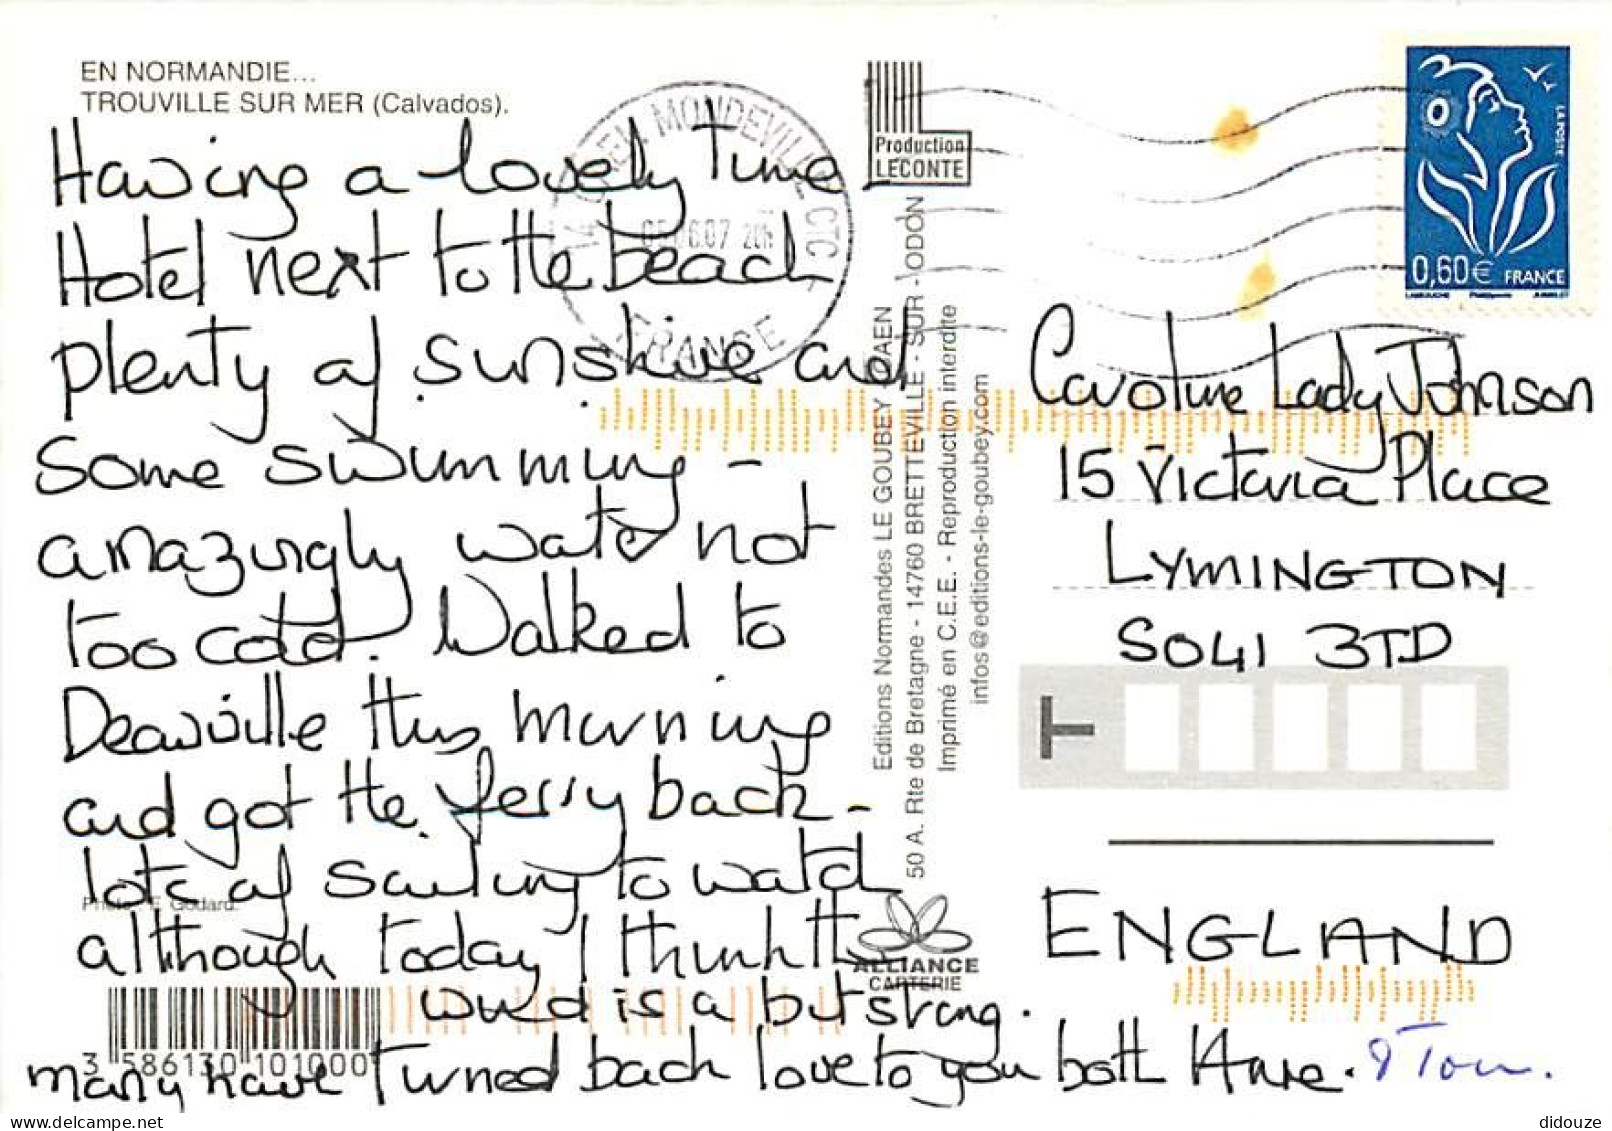 EN NORMANDIE...
TROUVILLE SUR MER (Calvados).
Having a lovely Time -
Hotel next to the beach
plenty of sunshine and
Some swimming -
amazingly water not
too cold. Walked to
Deauville this morning
and got the ferry back -
lots of sailing to watch
although today I think the
wind is a bit strong.
many have turned back love to you both Anne. & Tom.
Photo : E Godard.
3 586130 101000
14 CAEN MONDEVILLE CTC
07 20H
FRANCE
Production
LECONTE
Editions Normandes LE GOUBEY CAEN
50 A. Rte de Bretagne - 14760 BRETTEVILLE - SUR - ODON
Imprimé en C.E.E. - Reproduction interdite
infos@editions-le-goubey.com
ALLIANCE
CARTERIE
LA POSTE
0,60€ FRANCE
Caroline Lady Johnson
15 Victoria Place
LYMINGTON
SO41 3TD
T
ENGLAND
didouze